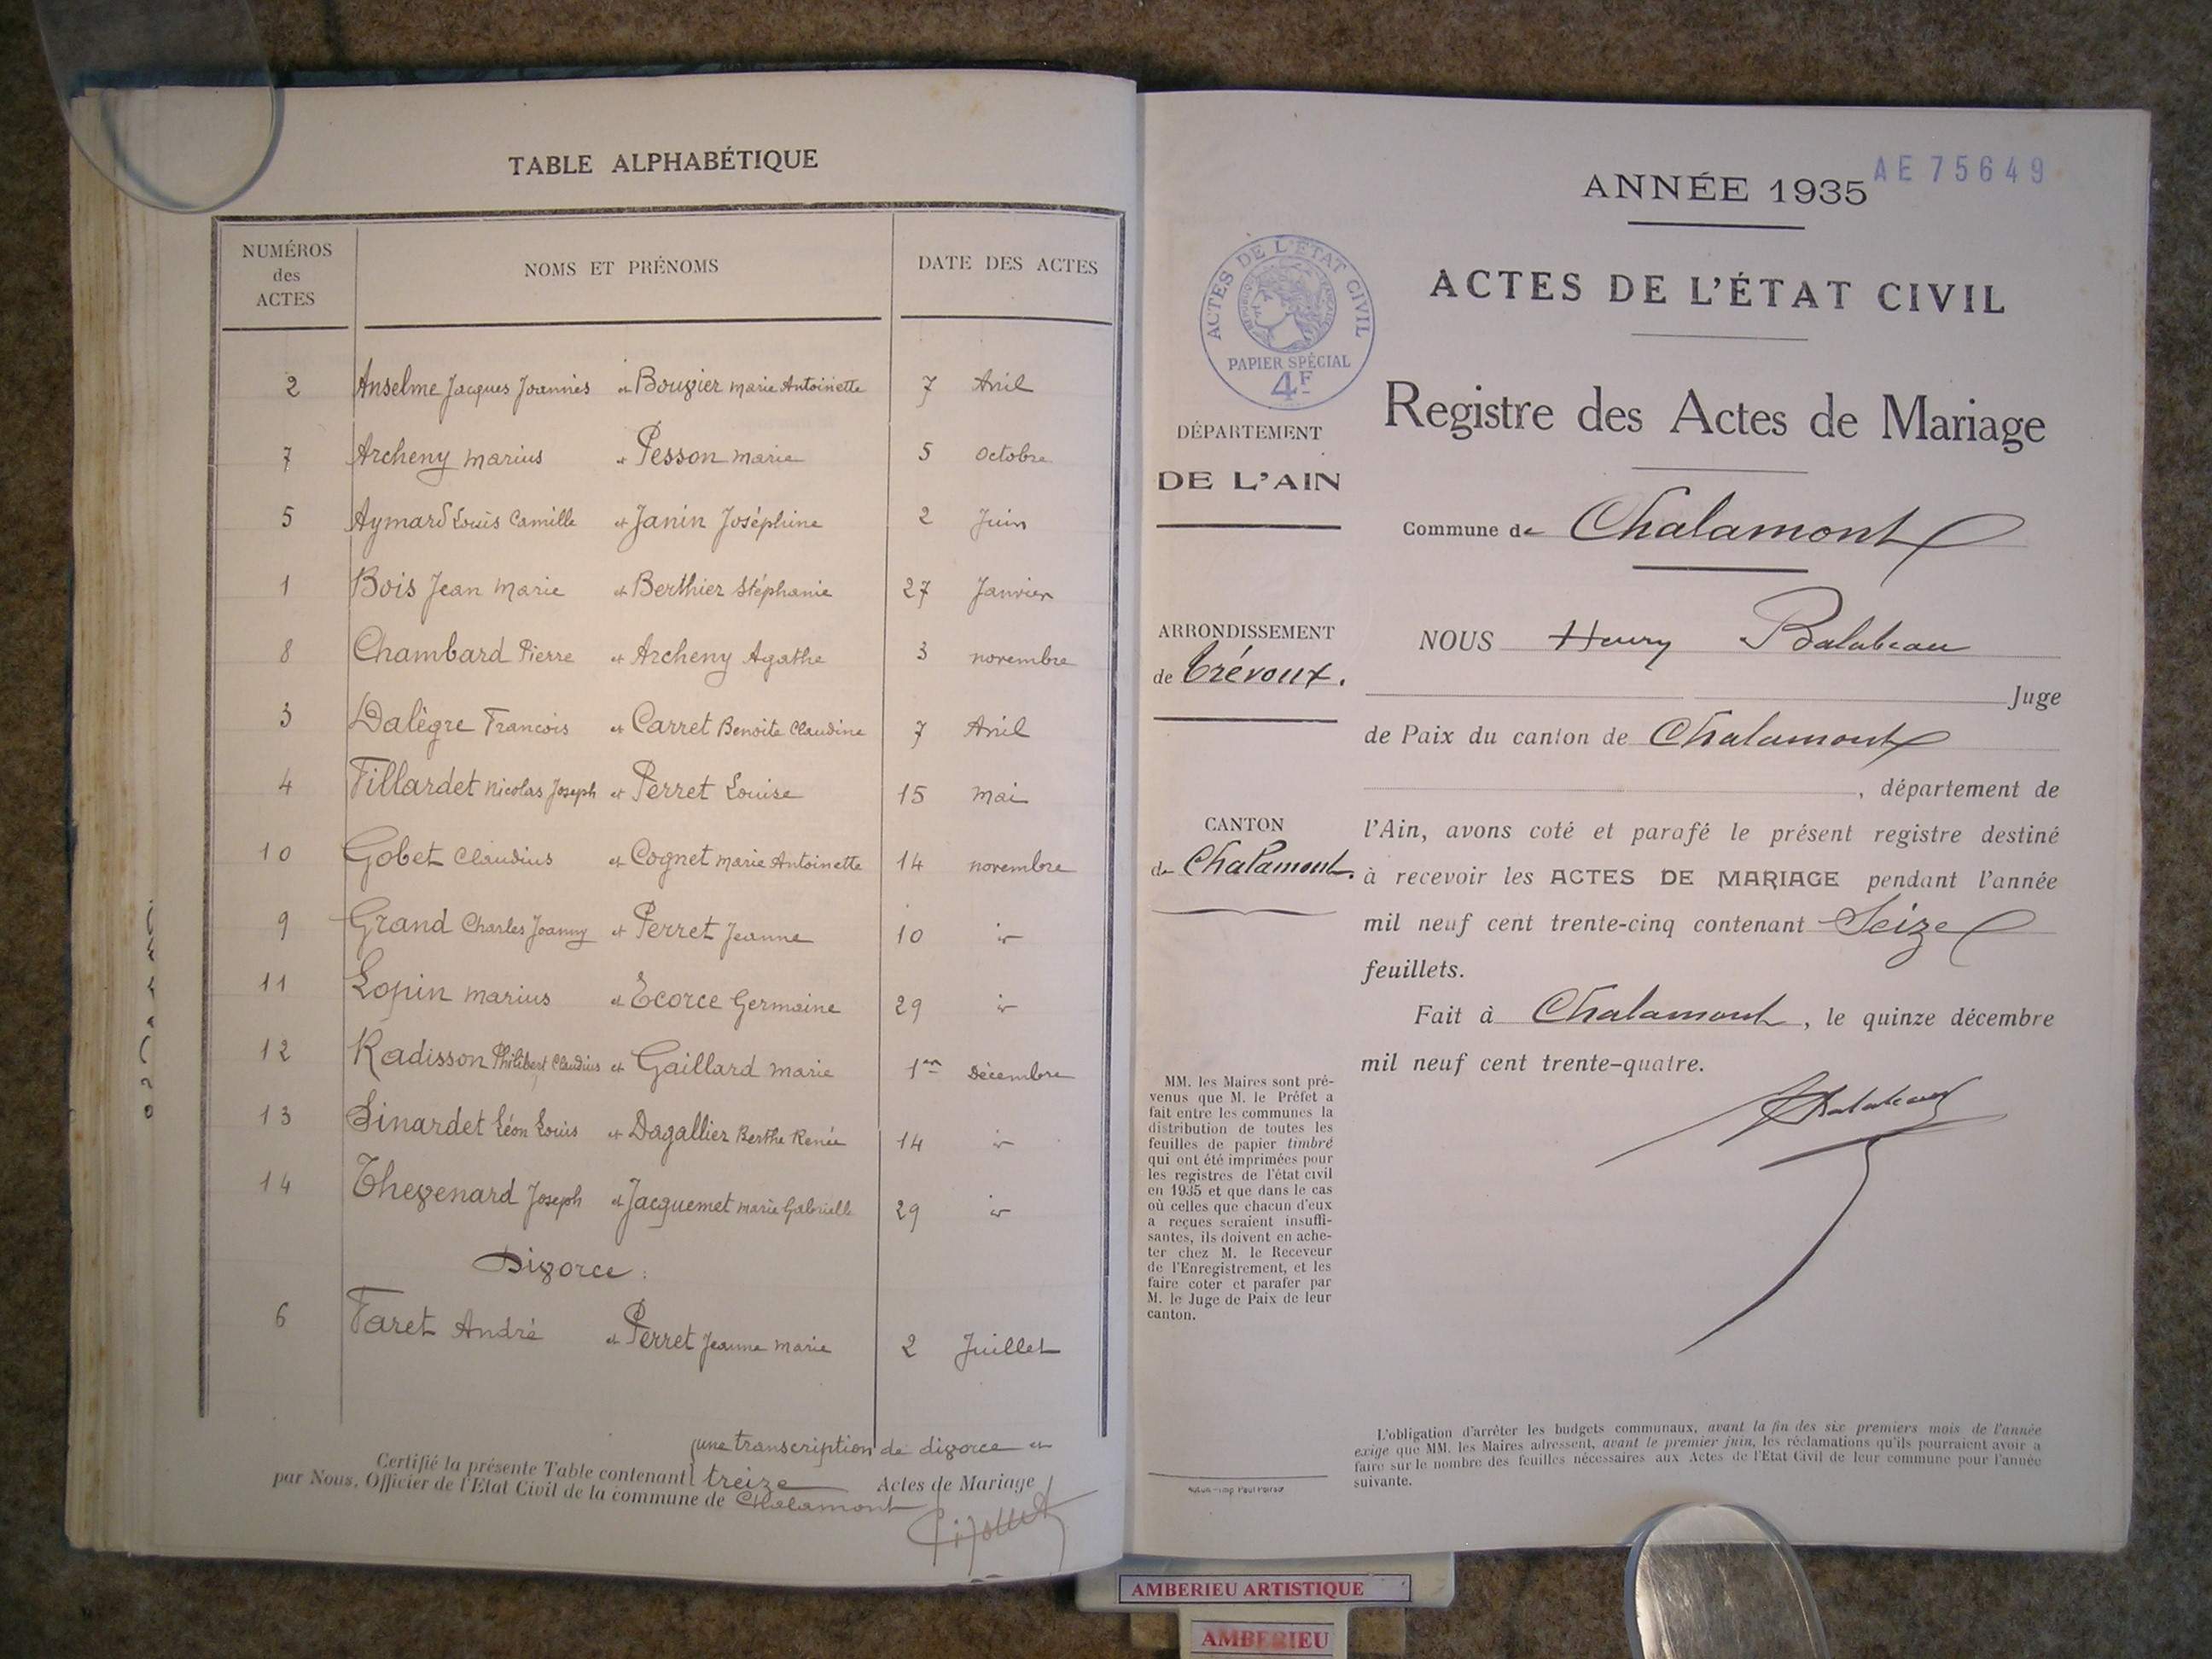 TABLE ALPHABÉTIQUE
NUMÉROS
des
ACTES
NOMS ET PRÉNOMS
DATE DES ACTES
2 Anselme Jacques Joannès et Bouvier Marie Antoinette 7 Avril
7 Archeny Marius et Pesson Marie 5 Octobre
5 Aymard Louis Camille et Janin Joséphine 2 Juin
1 Bois Jean Marie et Berthier Stéphanie 27 Janvier
8 Chambard Pierre et Archeny Agathe 3 novembre
3 Dalègre Francois et Carret Benoite Claudine 7 Avril
4 Fillardet Nicolas Joseph et Perret Louise 15 Mai
10 Gobet Claudius et Cognet Marie Antoinette 14 novembre
9 Grand Charles Joanny et Perret Jeanne 10 id
11 Lopin Marius et Ecorce Germaine 29 id
12 Radisson Philibert Claudius et Gaillard Marie 1er Décembre
13 Sinardet Léon Louis et Dagallier Berthe Renée 14 id
14 Thevenard Joseph et Jacquemet Marie Gabrielle 29 id
Divorce :
6 Faret André et Perret Jeanne Marie 2 Juillet
une transcription de divorce et
Certifié la présente Table contenant treize Actes de Mariage
par Nous, Officier de l'Etat Civil de la commune de Chalamont
AE 75649
ANNÉE 1935
ACTES DE L'ÉTAT CIVIL
RÉPUBLIQUE FRANÇAISE
PAPIER SPÉCIAL
4F
ACTES DE L'ÉTAT CIVIL
Registre des Actes de Mariage
DÉPARTEMENT
DE L'AIN
Commune de Chalamont
ARRONDISSEMENT
de Trévoux.
CANTON
de Chalamont.
NOUS Henry Balabeau
Juge
de Paix du canton de Chalamont
, département de
l'Ain, avons coté et parafé le présent registre destiné
à recevoir les ACTES DE MARIAGE pendant l'année
mil neuf cent trente-cinq contenant Seize
feuillets.
Fait à Chalamont, le quinze décembre
mil neuf cent trente-quatre.
MM. les Maires sont pré-
venus que M. le Préfet a
fait entre les communes la
distribution de toutes les
feuilles de papier timbré
qui ont été imprimées pour
les registres de l'état civil
en 1935 et que dans le cas
où celles que chacun d'eux
a reçues seraient insuffi-
santes, ils doivent en ache-
ter chez M. le Receveur
de l'Enregistrement, et les
faire coter et parafer par
M. le Juge de Paix de leur
canton.
L'obligation d'arrêter les budgets communaux, avant la fin des six premiers mois de l'année
exige que MM. les Maires adressent, avant le premier juin, les réclamations qu'ils pourraient avoir a
faire sur le nombre des feuilles nécessaires aux Actes de l'Etat Civil de leur commune pour l'année
suivante.
AMBERIEU ARTISTIQUE
AMBERIEU